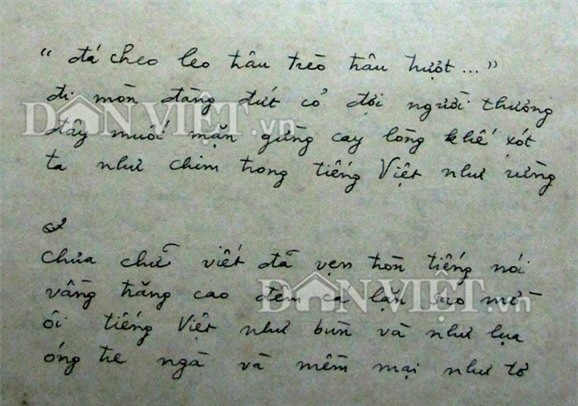 “ đá cheo leo trâu trèo trâu trượt ... ”
đi mòn đàng đứt cỏ đợi người thương
đây muối mặn gừng cay lòng khế xót
ta như chim trong tiếng Việt như rừng
2
chưa chữ viết đã vẹn tròn tiếng nói
vầng trăng cao đêm cá lặn sao mờ
ôi tiếng Việt như bùn và như lụa
óng tre ngà và mềm mại như tơ
DANVIỆT.vn
DANVIỆT.vn